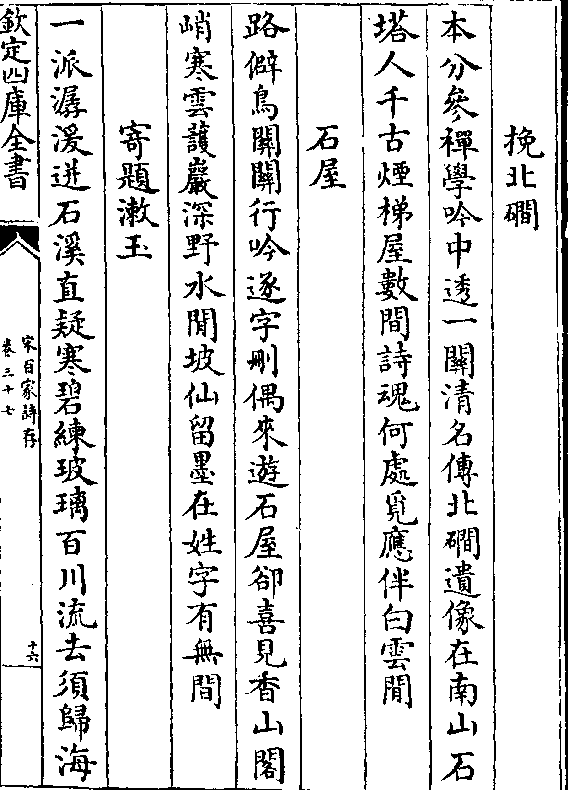 挽北磵
本分參禪學吟中透一關清名傳北磵遺像在南山石
塔人千古煙梯屋數間詩魂何處覓應伴白雲閒
石屋
路僻鳥關關行吟逐字刪偶來遊石屋卻喜見香山閣
峭寒雲護巖深野水閒坡仙留墨在姓字有無間
寄題漱玉
一派潺湲迸石溪直疑寒碧練玻璃百川流去須歸海
欽定四庫全書
宋百家詩存
卷三十七
十六